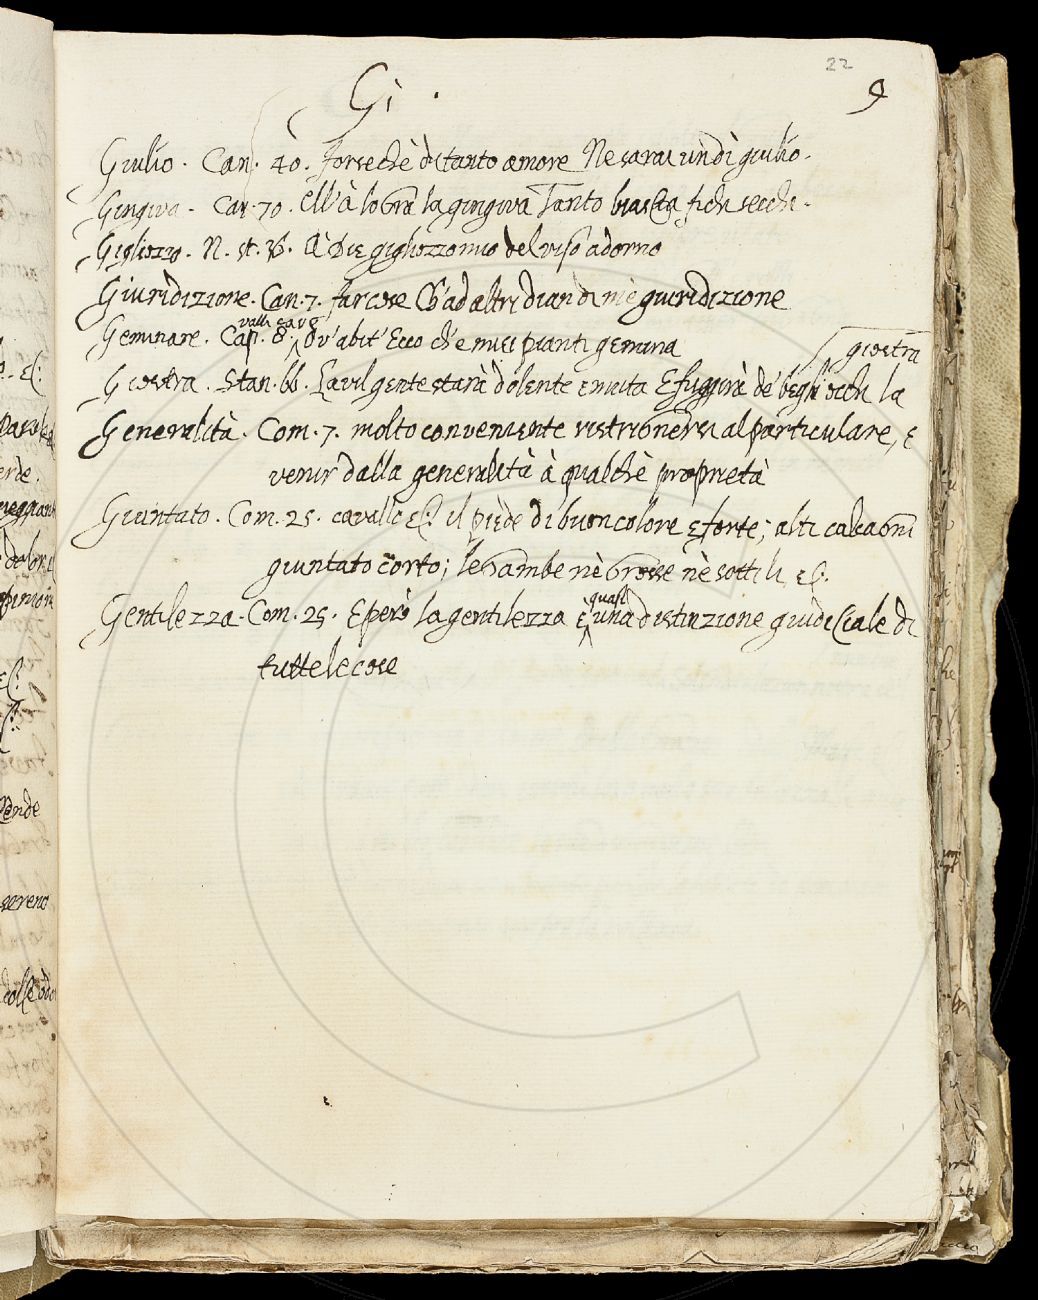 22
9
Gi.
Giulio. Can. 40. Forse chè di tanto amore Ne sarai un dì giulio.
Gingiva. Can. 70. Ell'à la gingiva Tanto biascia fichi secchi.
Gigliozzo. N. st. gigliozzo mio del viso adorno
Giuridizione. Can. 7. Far cose ch'ad altri dian di me giuridizione
valli cave
Geminare. Cap. 8. Ov'abit'Ecco ch'e miei pianti gemina
giostra
Giostra. Stan. La vil gente starà dolente e muta E fuggirà de' begli occhi la
Generalità. Com. 7. molto conveniente ristrignersi al particulare, e
venir dalla generalità à qualchè proprietà
Giuntato. Com. 25. cavallo &c. il piede di buon colore e forte; alti calcagni
giuntato corto; le gambe nè grosse nè sottili &c.
quasi
Gentilezza. Com. 25. E però la gentilezza è una distinzione giudiciale di
tutte le cose